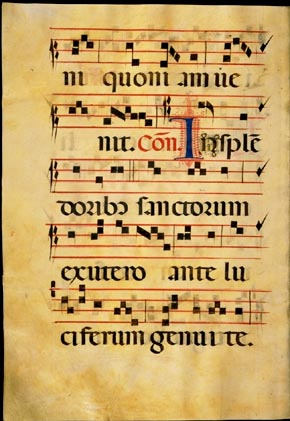 ni quoni am ve
nit. Cōn. In splē
doribɔ sanctorum
ex utero ante lu
ciferum genui te.